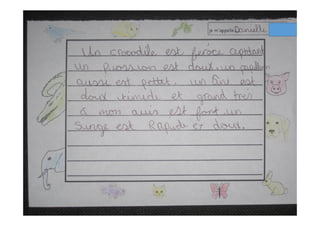 je m'appelle Danielle
Un crocodile est féroce cepandant
un poisson est doux, un papillon
aussi est petit, un lion est
doux, timide et grand très
à mon avis est fort, un
Singe est Rapide et doux.